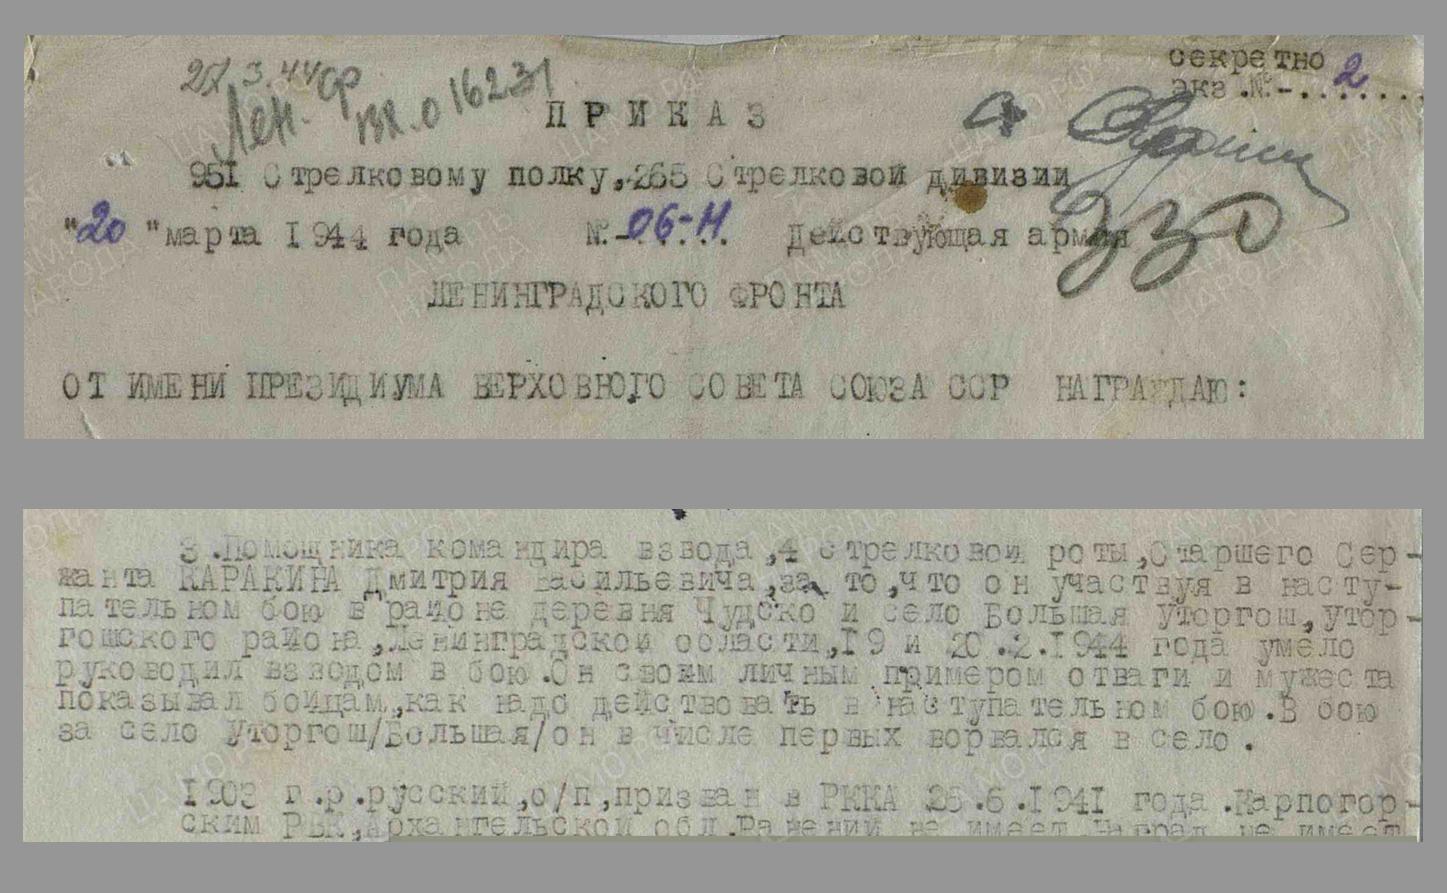 секретно
экз.№-2......
27.3.44
Лен. ср
вх.0 16231
ПРИКАЗ
951 Стрелковому полку,265 Стрелковой дивизии
"20"марта 1944 года №-06-Н Действующая армия
230
ЛЕНИНГРАДСКОГО ФРОНТА
ОТ ИМЕНИ ПРЕЗИДИУМА ВЕРХОВНОГО СОВЕТА СОЮЗА ССР НАГРАЖДАЮ:
3.Помощника командира взвода,4 стрелковой роты,Старшего Сер-
жанта КАРАКИНА Дмитрия Васильевича,за то,что он участвуя в насту-
пательном бою в районе деревня Чудско и село Большая Уторгош,утор-
гошского района,Ленинградской области,19 и 20.2.1944 года умело
руководил взводом в бою.Он своим личным примером отваги и мужеста
показывал бойцам,как надо действовать в наступательном бою.В бою
за село Уторгош/Большая/он в числе первых ворвался в село.
1903 г.р.русский,о/п,призван в РККА 25.6.1941 года.Карпогор-
ским РВК,Архангельской обл.Ранений не имеет Наград не имеет